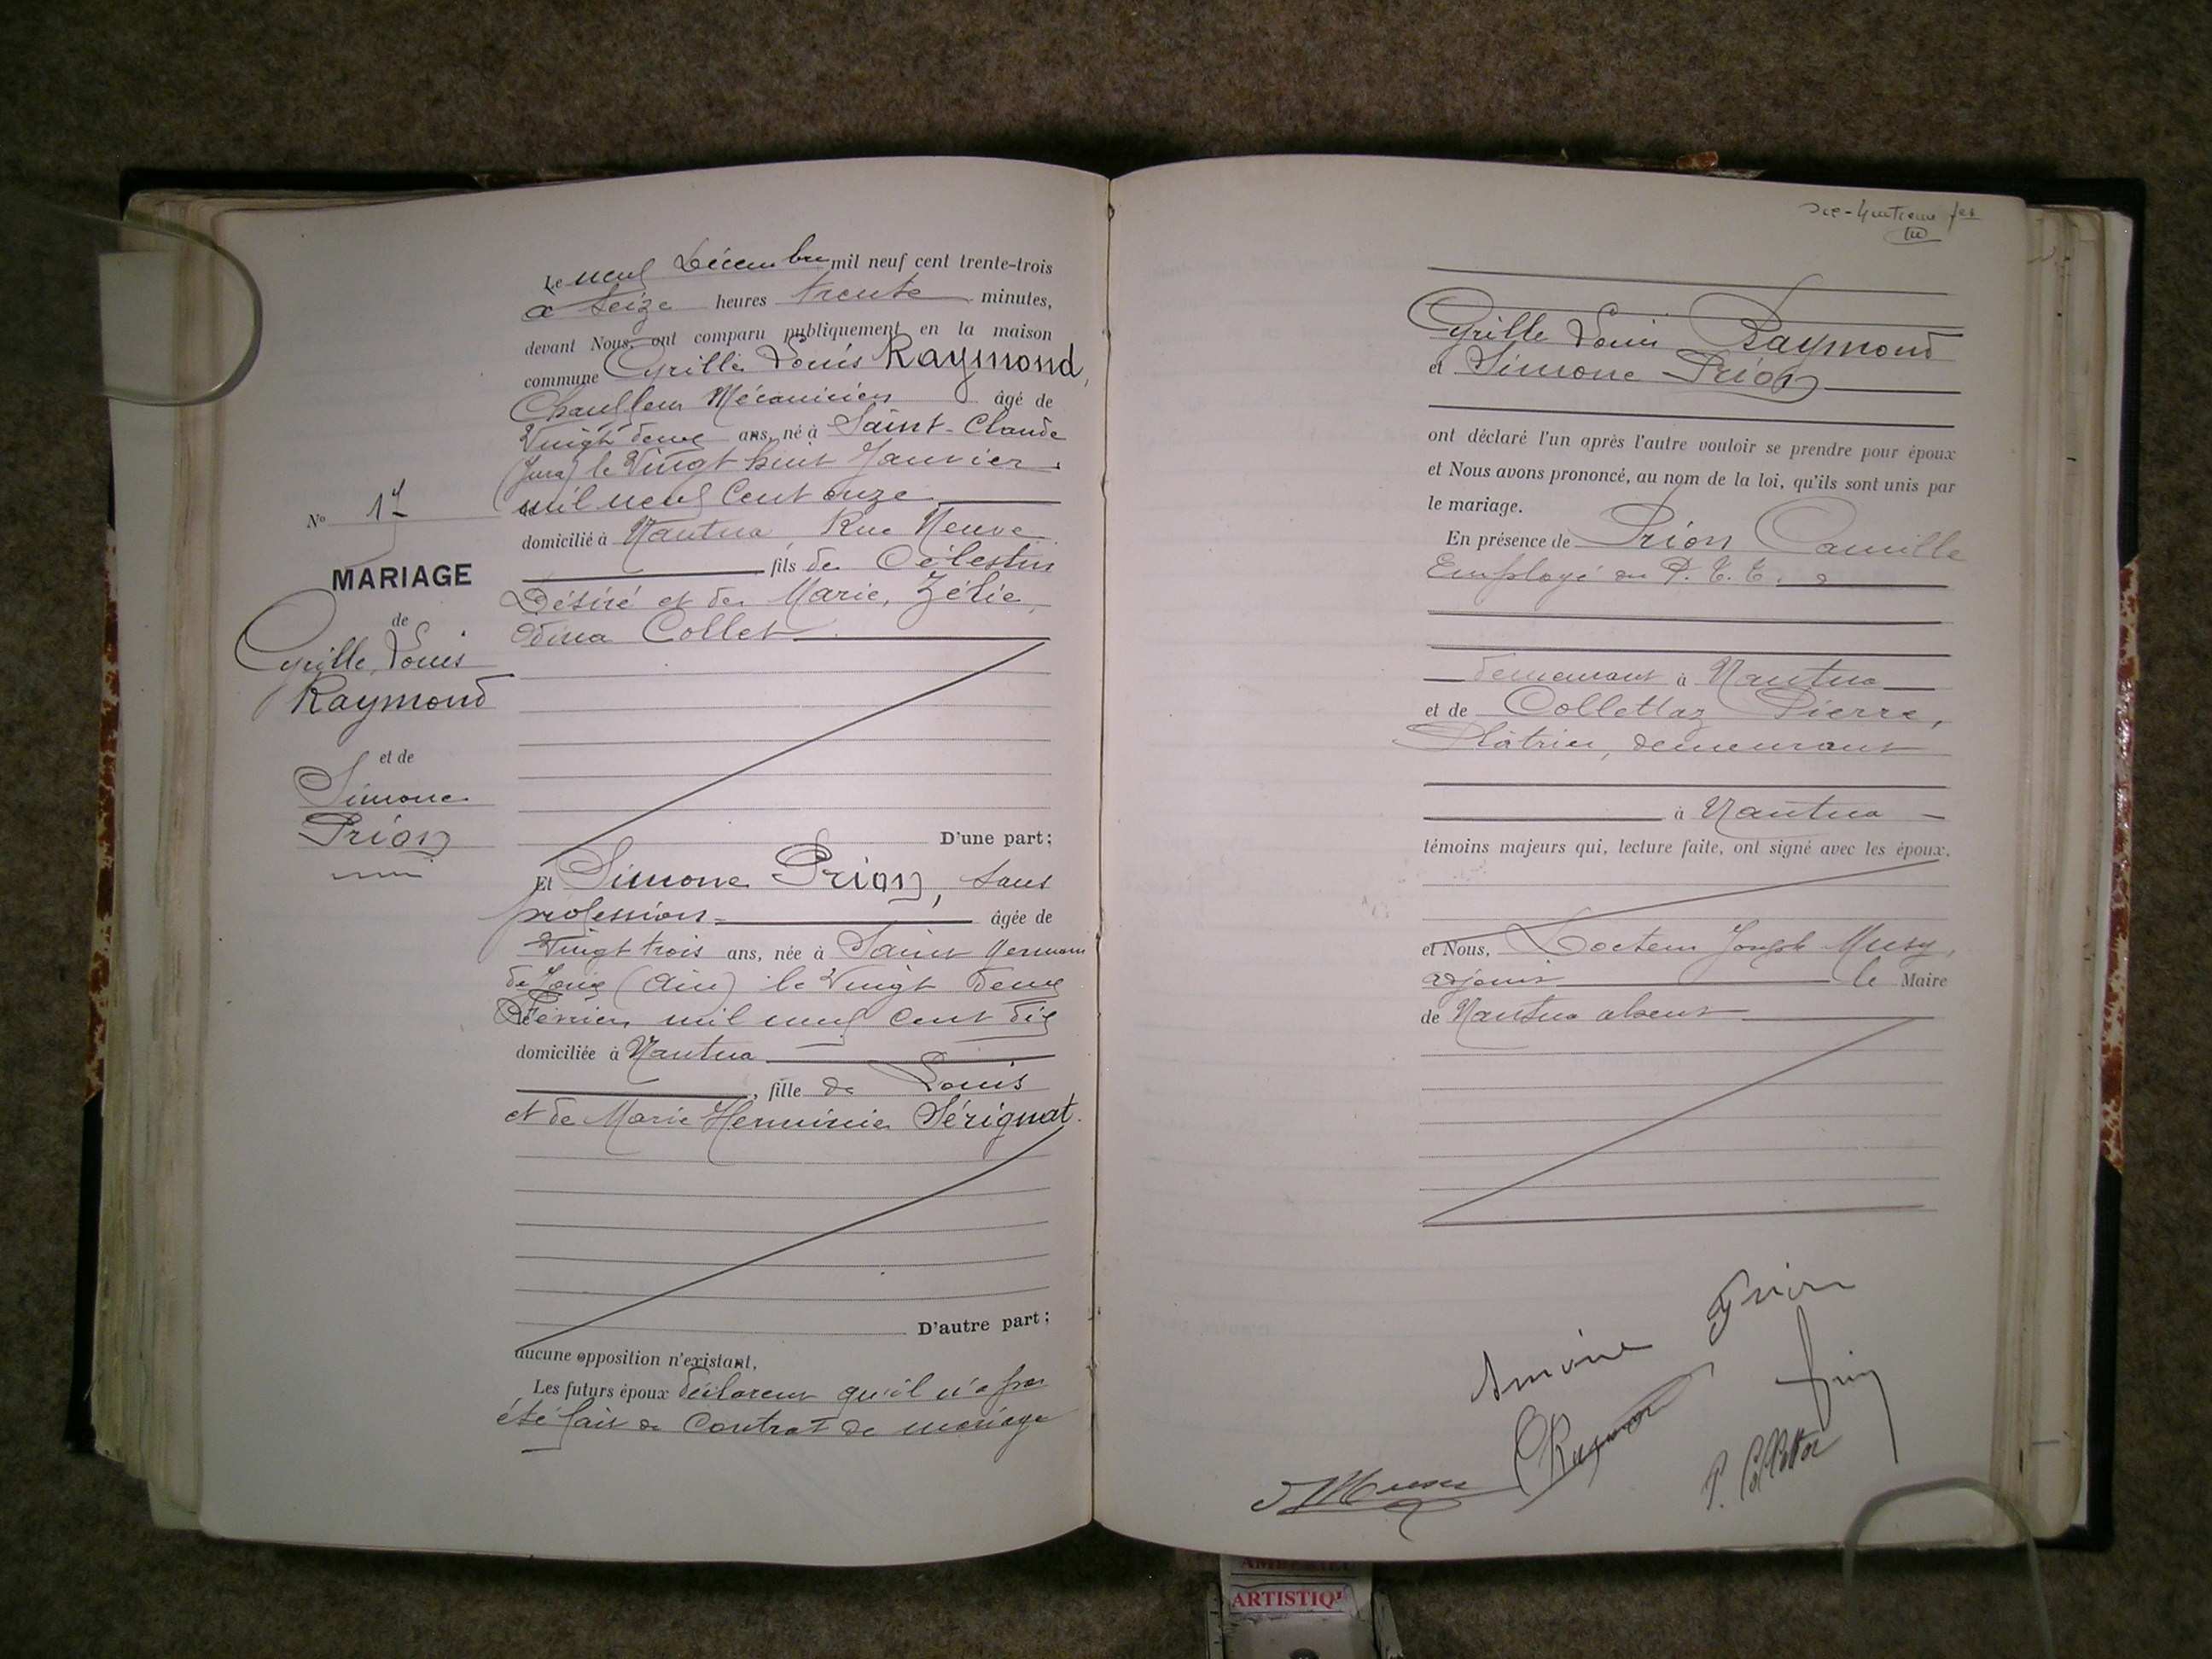 Le neuf Décembre mil neuf cent trente-trois
à seize heures trente minutes,
devant Nous, ont comparu publiquement en la maison
commune Cyrille Louis Raymond,
Chauffeur Mécanicien âgé de
Vingt deux ans, né à Saint-Claude
(Jura) le Vingt huit Janvier
mil neuf Cent onze
domicilié à Nantua, Rue Neuve
fils de Célestin
Désiré et de Marie, Zélie,
Collet
D'une part;
Et Simone Prion, sans
profession âgée de
Vingt trois ans, née à Saint Germain
de Joux (Ain) le Vingt deux
Février mil neuf cent dix
domiciliée à Nantua
, fille de Louis
et de Marie Herminie Sérignat.
D'autre part;
aucune opposition n'existant,
Les futurs époux déclarent qu'il n'a pas
été fait de Contrat de mariage
No
MARIAGE
de
Cyrille, Louis
Raymond
et de
Simone
Prion
Cyrille Louis Raymond
et Simone Prion
ont déclaré l'un après l'autre vouloir se prendre pour époux
et Nous avons prononcé, au nom de la loi, qu'ils sont unis par
le mariage.
En présence de Prion Camille
Employé au P.T.T.
demeurant à Nantua
et de Collettaz Pierre,
Plâtrier, demeurant
à Nantua
témoins majeurs qui, lecture faite, ont signé avec les époux.
et Nous, Docteur Joseph Musy,
adjoint le Maire
de Nantua absent
Simone Prion
Prion
CRaymond
P. Collettaz
J Musy
ARTISTIQ